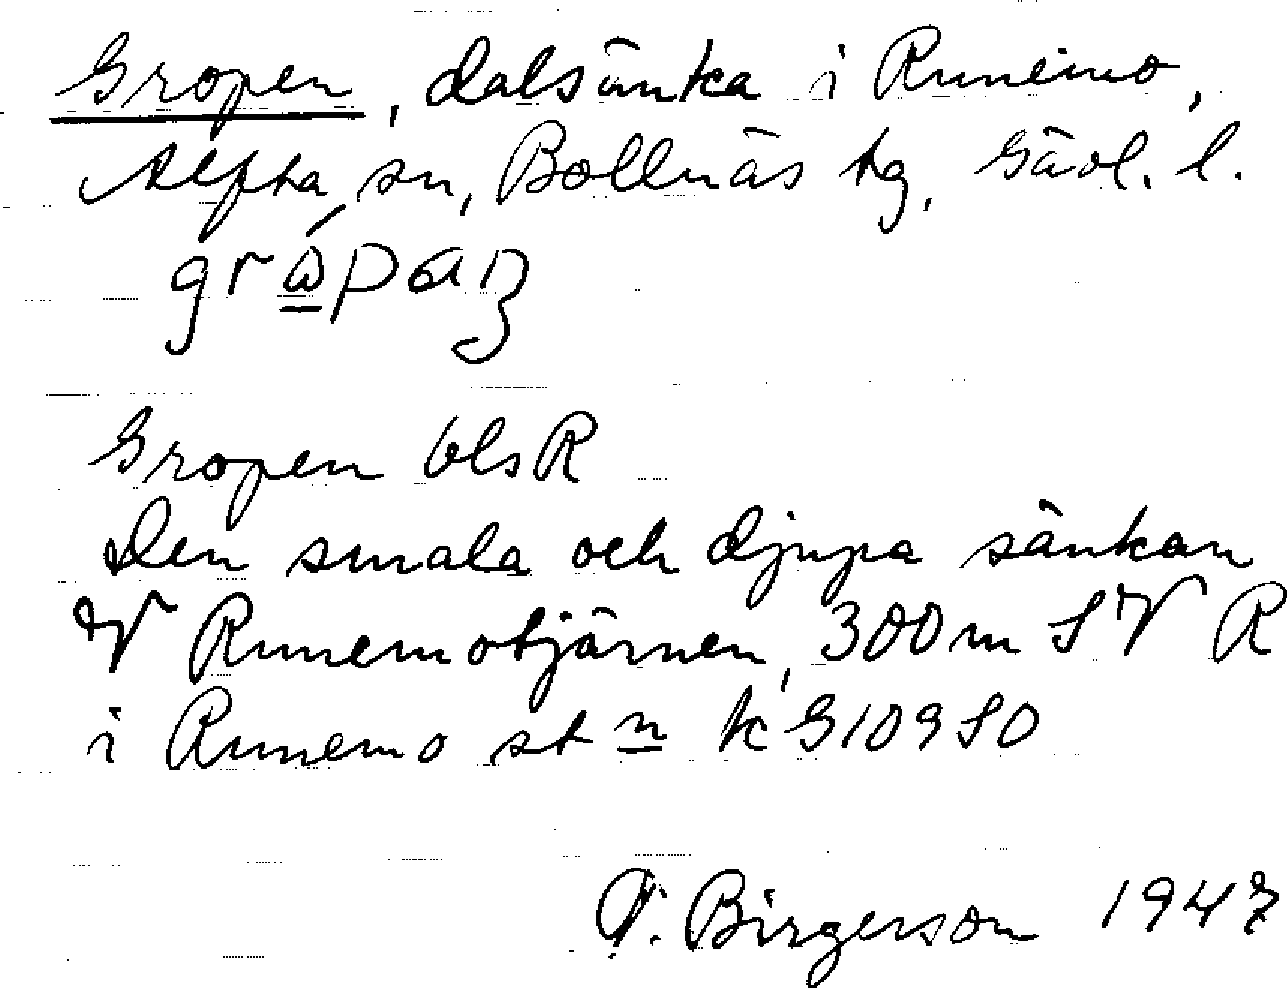 Gropen, dalsänka i Runemo,
Alfta sn, Bollnäs tg, Gävl. l.
Gropen bls R
Den smala och djupa sänkan
V Runemotjärnen, 300 m SV R
i Runemo st n k G10950
Birgerson 1947